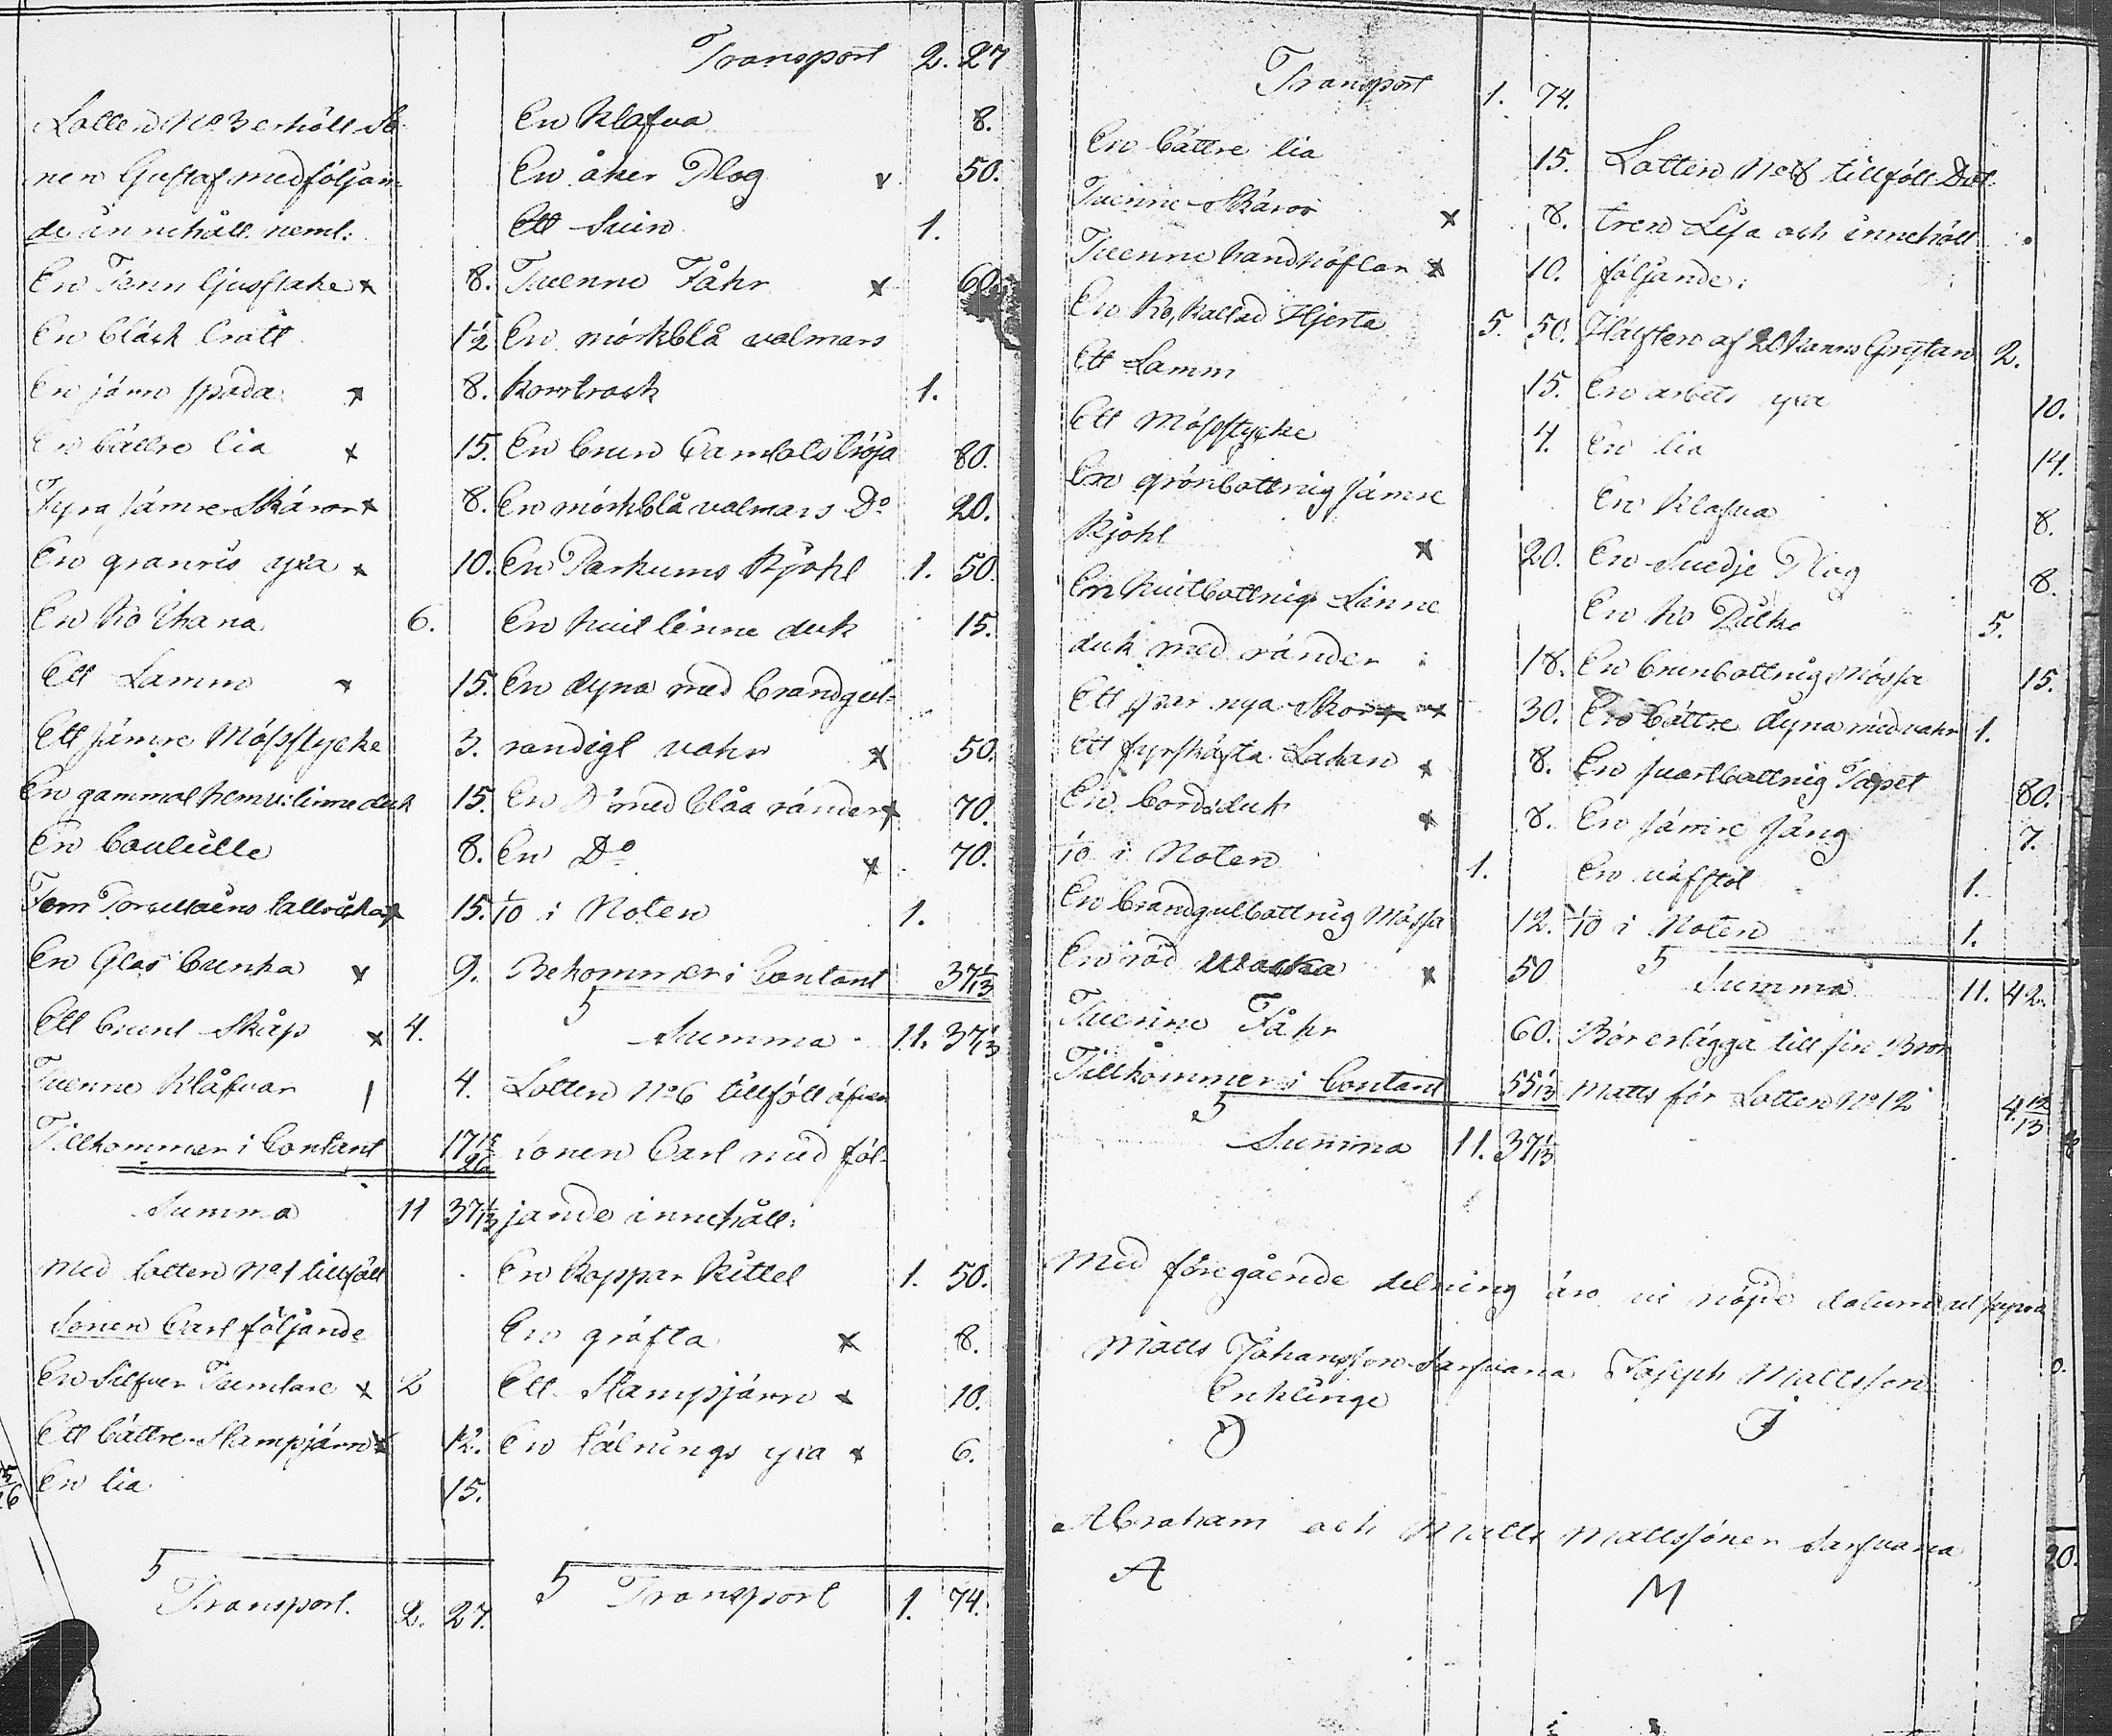 Lotten No 3 erhöll So
nen Gustaf med följan-
de innehåll neml:
En Tenn ljusstake x 8.
En bläck brätt 1½
En järn spada x 8.
En bättre lia x 15.
Fyra sämre Skäror x 8.
En granris yxa x 10.
En Ko Thana 6.
Ett Lamm x 15.
Ett sämre Mössstycke 3.
En gammal hemv: linne duk 15.
En Bouteille 8.
Fem Porcellains tallrickar x 15.
En Glas bunka x 9.
Ett brunt Skåp x 4.
Tvenne Klåfvar 4.
Tillkommer i Contant 17 15/26
Summa 11 37 1/13
Med Lotten No 1 tillföll
Sonen Carl följande
En Silfver Tumlare x 2
Ett bättre Stampjärn x 12.
En lia 15.
5
Transport. 2. 27.
Transport 2. 27
En Klafva 8.
En åker Plog x 50.
Ett Svin 1.
Tvenne Fåhr x 60.
En mörkblå valmars
Kortrock 1.
En brun Camlols tröja 80.
En mörkblå valmars Do 20.
En Parkums Kjohl 1. 50.
En hvit linne duk 15.
En dyna med brandgul-
randigt vahr x 50.
En Do med blåa ränder x 70.
En Do x 70.
1/10 i Noten 1.
Bekommer i Contant 37 1/13
5
Summa 11. 37 1/13
Lotten No 6 tillföll äfven
Sonen Carl med föl-
jande innehåll:
En Koppar Kittel 1. 50.
En gräfta x 8.
Ett Stampjärn x 10.
En tälnings yxa x 6.
5 Transport 1. 74.
Transport 1. 74.
En bättre lia 15.
Tvenne Skäror x 8.
Tvenne handhöflar x 10.
En Ko, kallad Hjerta 5. 50.
Ett Lamm 15.
Ett Mössstycke 4.
En grönbottnig sämre
Kjohl x 20.
En hvitbottnig Linne
duk med ränder 18.
Ett par nya Skor x 30.
Ett fyrskäfta Lakan x 8.
En bordsduk x 8.
1/10 i Noten 1.
En brandgulbottnig Mössa 12.
En röd x 50
Tvenne Fåhr 60.
Tillkommer i Contant 55 1/13
5
Summa 11. 37 1/13
Lotten No 8 tillföll Dot-
tren Lisa och innehöll
följande:
Hälften af 20 Kanns Grytan 2.
En arbets yxa 10.
En lia 14.
En Klafva 8.
En Svedje Plog 8.
En Ko 5.
En brunbottnig Mössa 15.
En bättre dyna med vahr 1.
En svartbottnig Tapet 80.
En sämre Säng 7.
En väfstol 1.
1/10 i Noten 1.
5
Summa 11. 42.
Bör erlägga till sin Bror
Matts för Lotten No 12 4 12/13
Med föregående delning äro vi nöjde datum ut supra
Matts Johansson Sarsvara Joseph Mattsson
Enklinge
J
Abraham och Matts Mattssöner Sarsvara
A M
20.